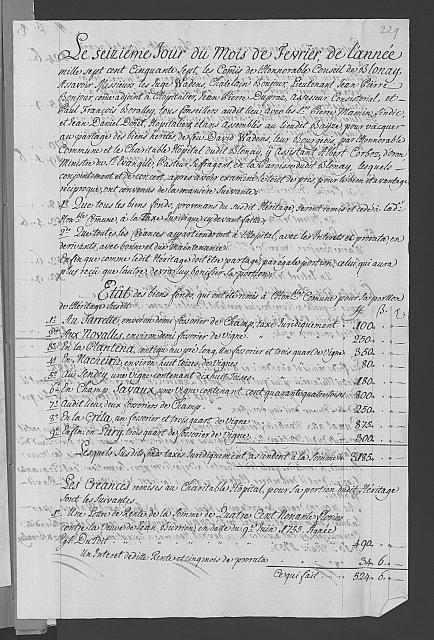 229
Le seiziéme Jour du Mois de Fevrier, de l'année
mille sept cent Cinquante Sept, les Comis de l'honnorable Conseil de Blonay,
Assavoir Messieurs les Juge Wadens, Chatelain Bonjour, Lieutenant Jean Pierre
Bonjour, comme adjoint à l'hospitalier, Jean Pierre Dupraz, assesseur Consistorial, et
Paul François Boralley, tous Conseillers audit lieu, avec les Srs Pierre Mamin, Sindic,
et Jean Daniel Hospitalier, étant Assemblés au lieudit Bayse, pour vacquer
au partage des biens herités de feu David Wadens, leur Bourgeois, par l'honnorable
Commune et le Charitable Hôpital dudit Blonay, y assistant Albert Corboz,
Ministre du St Evangile, Pasteur Suffragant de la Paroisse dudit Blonay, lesquels
conjointement et de concert, après avoir examiné le tout de près, pour le bien et avantage
réciproque, ont convenus de la manière Suivante.
1º Que tous les biens fonds, provenant du susdit Héritage, seront remis et cédé à lad.e
Honble Comune, à la Taxe Juridique, cy devant faitte.
2º Que toutes les Créances appartiendront à l'hôpital, avec les Interets et prorata, en
derivants, avec bosses et dix Maintenances.
Enfin que comme ledit Héritage doit être partagé, par égale portion, celui qui aura
plus reçu que l'autre, devra luy bonifier sa portion.
Etat des biens fonds, qui ont été remis à l'Honble Comune pour sa portion
de l'Héritage Susdit
1º Au Jarrette, environ demi fossorier de Champ, taxé Juridiquement 100
2º Aux Novalles, environ demi fossorier de Vigne 250
3º En la Plantena, un tiers de fossorier et trois quart de Vigne 350
4º En Macheiri, environ huit toises de Vignes 80
5º au Jendey, une Vigne contenant dix huit Toises 180
6º En Champ Savaux, une Vigne contenant cent quarante quatre toises 800
7º Audit lieu, deux fossoriers de Champ 250
8º En la Crita, un fossorier et trois quart de Vigne 875
9º Enfin en Pury, trois quart de fossorier de Vigne 300
Lesquels Susdits fonds taxés Juridiquement, ascendent à la Somme de 3185
Les Créances remises au Charitable Hôpital, pour sa portion dudit Héritage
Sont les Suivantes
1º Une Lettre de Rente de la Somme de Quatre Cent Nonante florins
contre la Veuve de Jean Burnon, en datte du 9e Juin 1755 Signée
490
Un Interet de ditte Rente et cinq mois de prorata 34 6
Ce qui fait 524 6